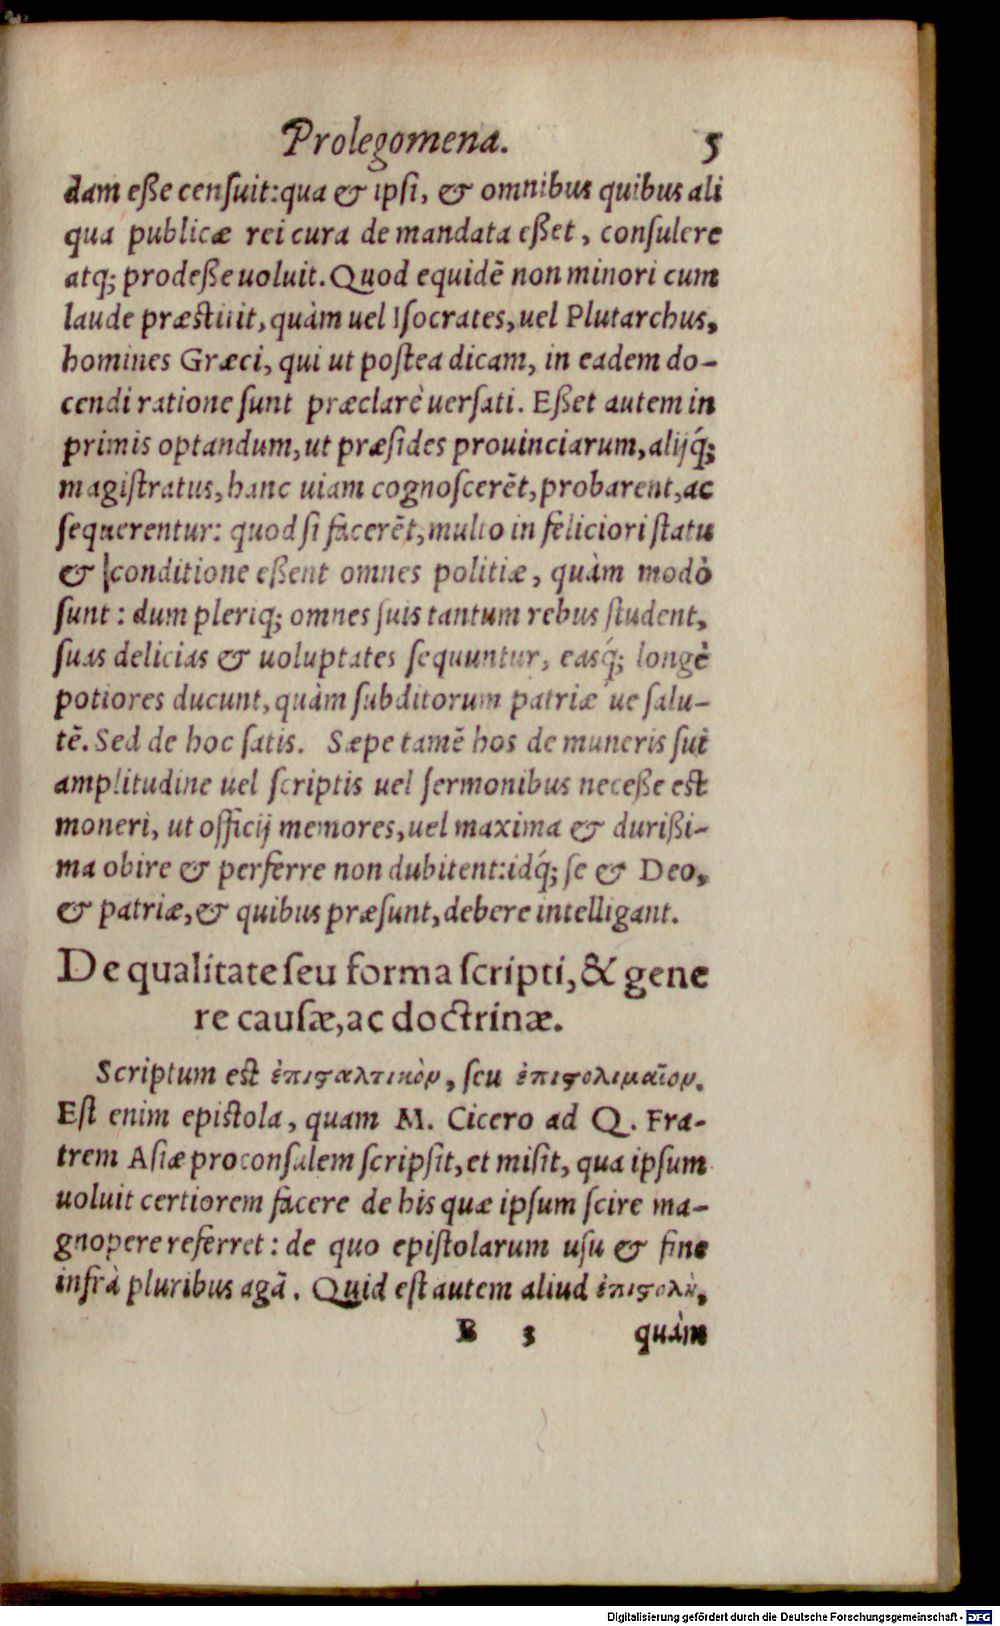 Prolegomena. 5
dam eße censuit: qua & ipsi, & omnibus quibus ali
qua publicæ rei cura de mandata eßet, consulere
atq; prodeße uoluit. Quod equidē non minori cum
laude præstitit, quàm uel Isocrates, uel Plutarchus,
homines Græci, qui ut postea dicam, in eadem do-
cendi ratione sunt præclarè uersati. Eßet autem in
primis optandum, ut præsides prouinciarum, alijq́;
magistratus, hanc uiam cognoscerēt, probarent, ac
sequerentur: quod si facerēt, multo in feliciori statu
& conditione eßent omnes politiæ, quàm modò
sunt: dum pleriq; omnes suis tantum rebus student,
suas delicias & uoluptates sequuntur, easq́; longè
potiores ducunt, quàm subditorum patriæ ue salu-
tē. Sed de hoc satis. Sæpe tamē hos de muneris sui
amplitudine uel scriptis uel sermonibus neceße est
moneri, ut officij memores, uel maxima & durißi-
ma obire & perferre non dubitent: idq́; se & Deo,
& patriæ, & quibus præsunt, debere intelligant.
De qualitate seu forma scripti, & gene
re causæ, ac doctrinæ.
Scriptum est ἐπιϛαλτικὸν, seu ἐπιϛολιμαῖον.
Est enim epistola, quam M. Cicero ad Q. Fra-
trem Asiæ proconsulem scripsit, et misit, qua ipsum
uoluit certiorem facere de his quæ ipsum scire ma-
gnopere referret: de quo epistolarum usu & fine
infrà pluribus agā. Quid est autem aliud ἐπιϛολὴ,
B 3 quàm
Digitalisierung gefördert durch die Deutsche Forschungsgemeinschaft - DFG